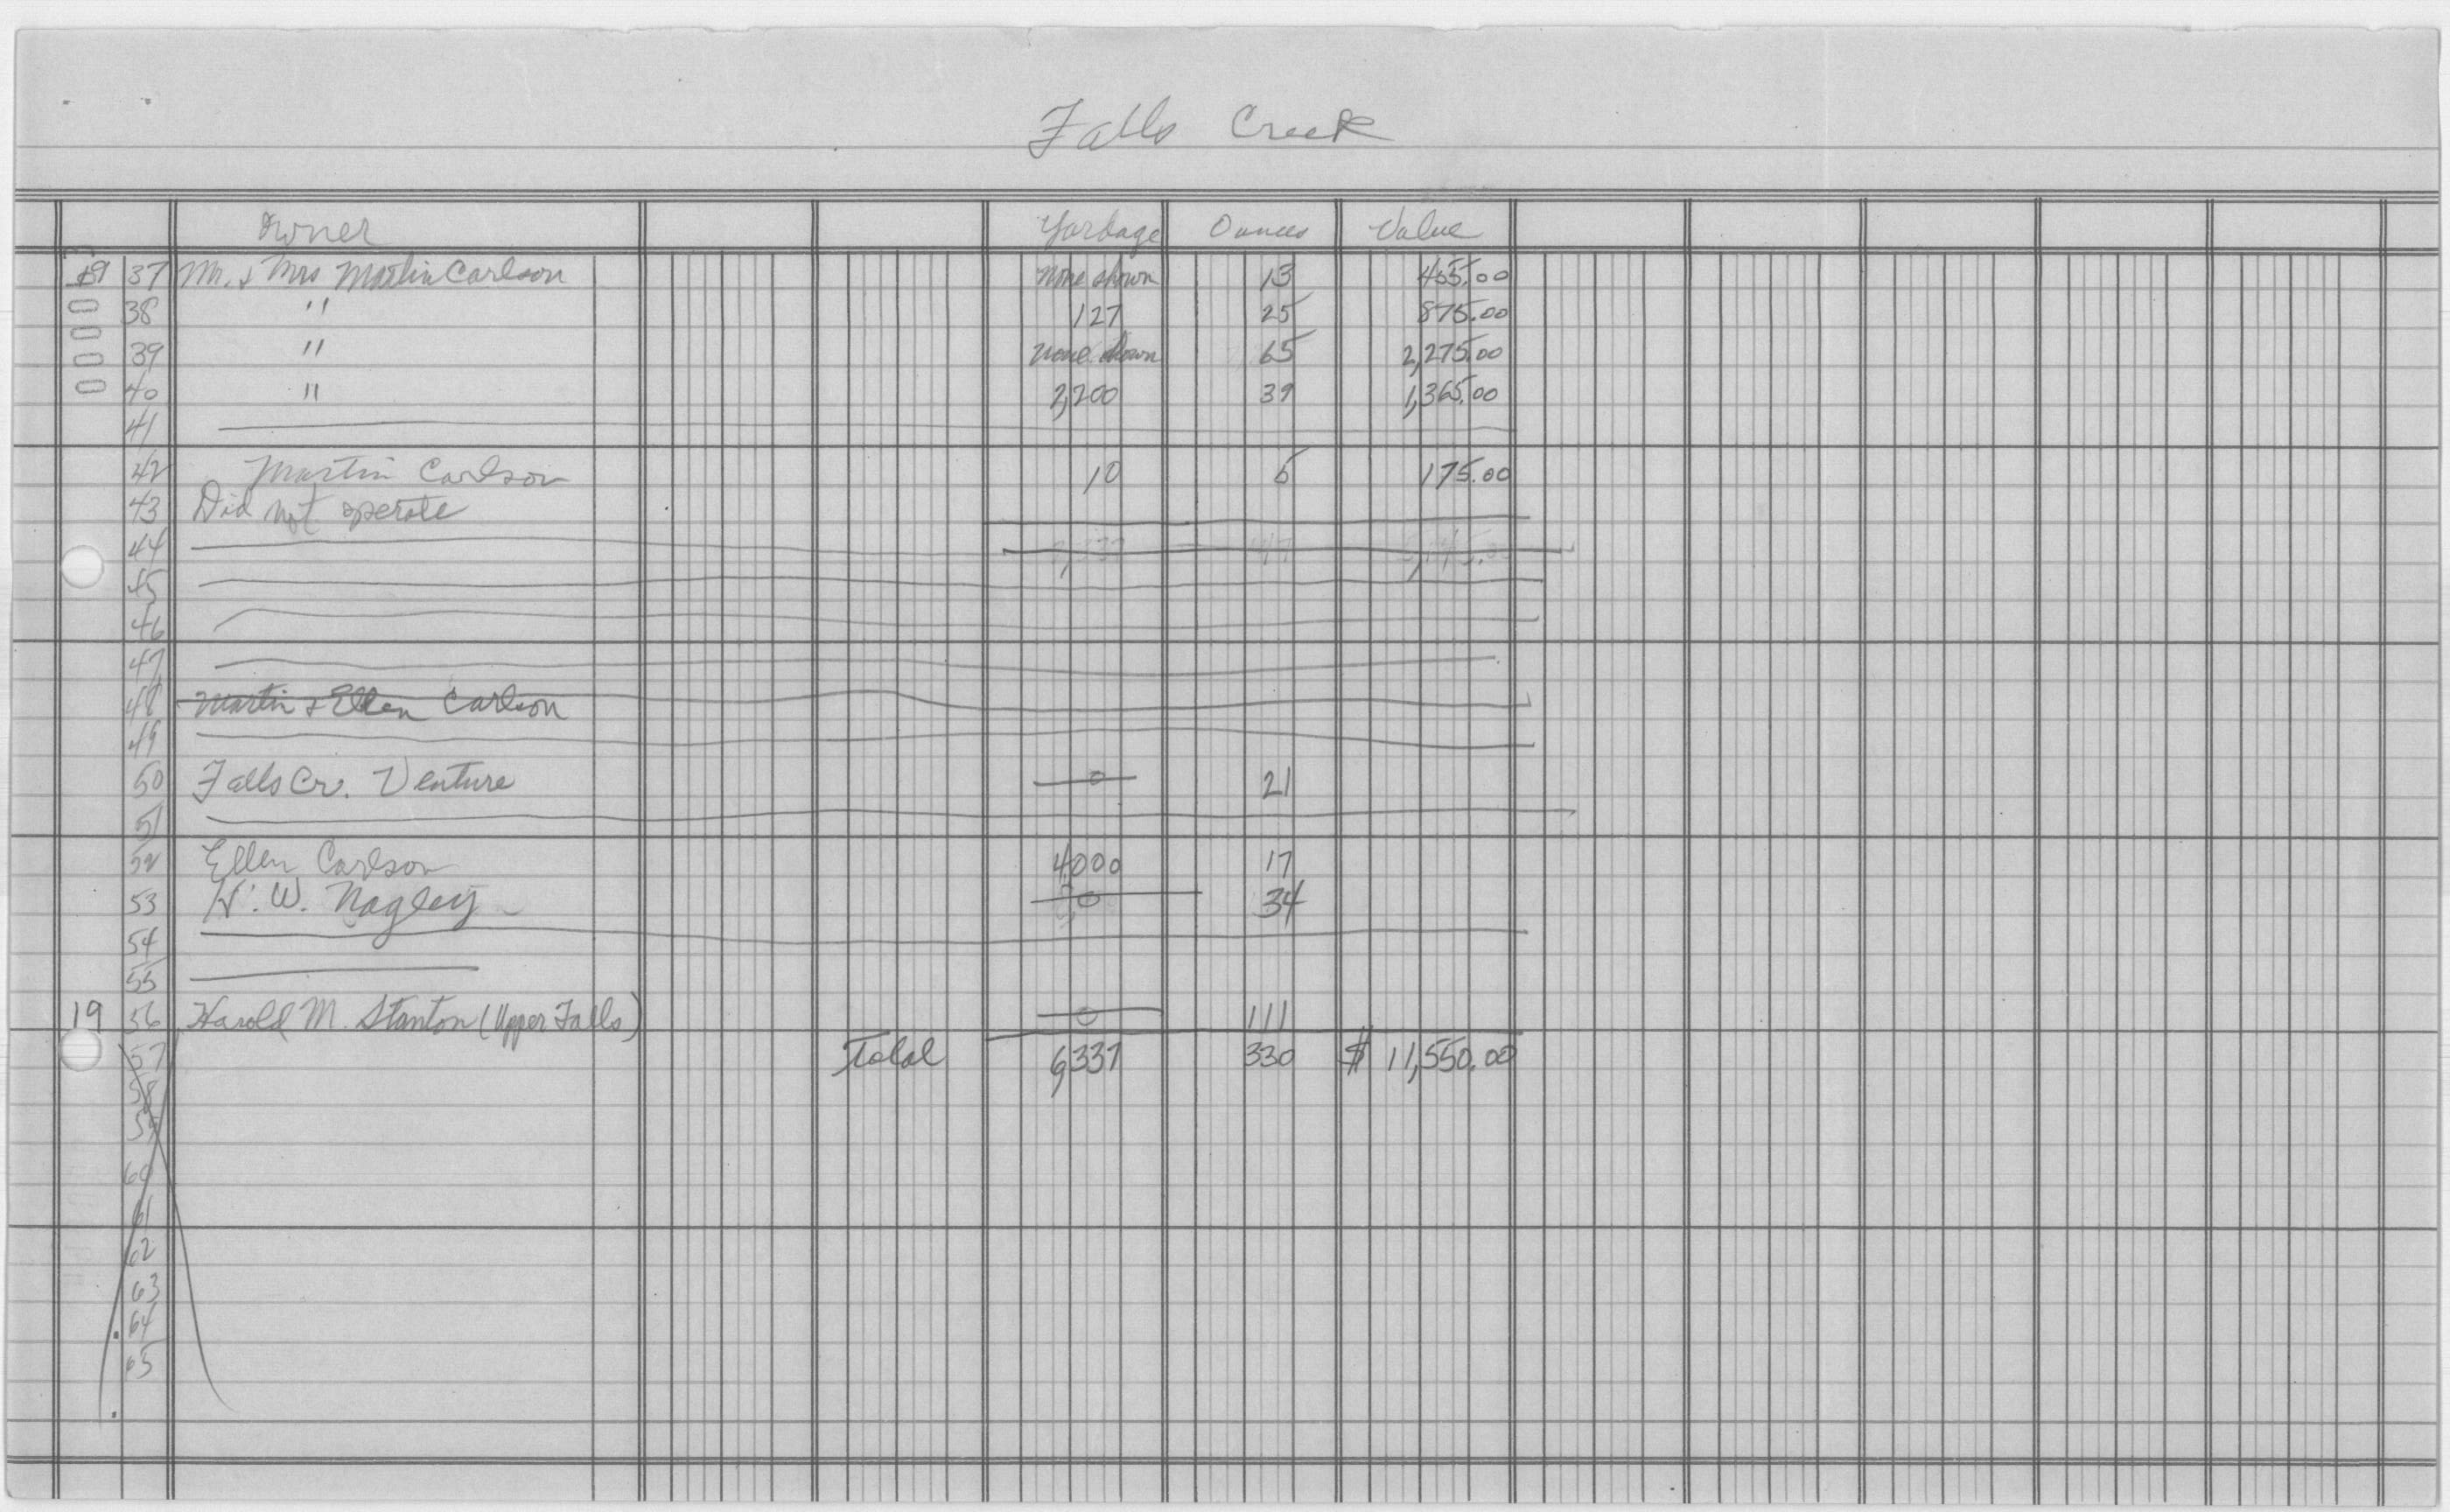 Falls Creek
Owner Yardage Ounces Value
19 37 Mr. & Mrs Martin Carlson None shown 13 455.00
38 " 127 25 875.00
39 " None shown 65 2,275.00
40 " 2,200 39 1,365.00
41
42 Martin Carlson 10 5 175.00
43 Did not operate
44
45
46
47
48 Martin & Ellen Carlson
49
50 Falls Cr. Venture 0 21
51
52 Ellen Carlson 4000 17
53 H. W. Nagley 0 34
54
55
19 56 Harold M. Stanton (Upper Falls) 0 111
57 Total 6,337 330 $ 11,550.00
58
59
60
61
62
63
64
65